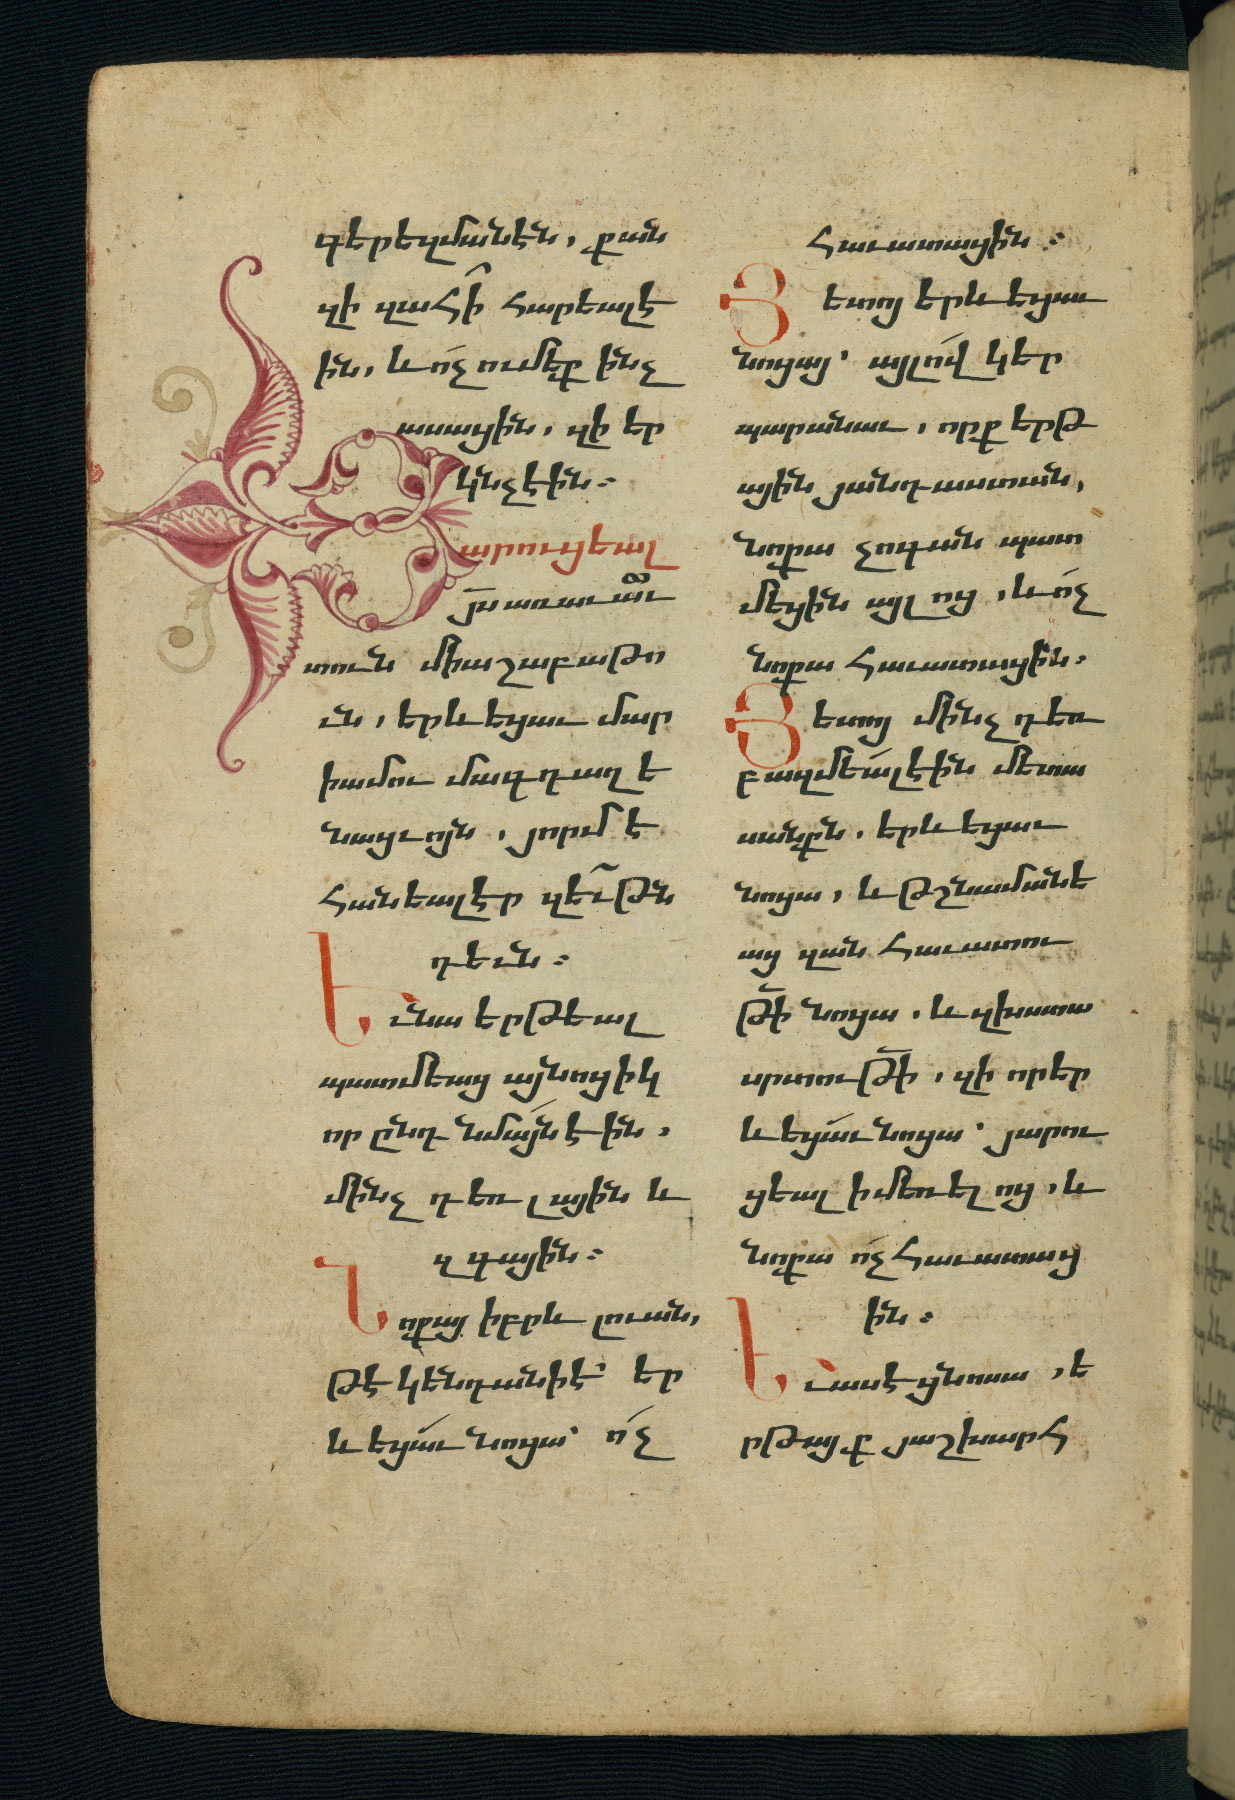 գերեզմանէն, քան
զի զահի հարեալ է
ին, և ոչ ումեք ինչ
ասացին, զի եր
կնչէին։
Յարուցեալ
յս առաւաւ
տուն միաշաբաթո
ւն, երևեցաւ մար
իամու մագդաղե
նացւոյն, յորմէ
հանեալ էր զեւթն
դեւն։
Եւ նա երթեալ
պատմեաց այնոցիկ
որ ընդ նմայն էին,
մինչ դեռ լային և
զգային։
Նոքայ իբրև լուան,
թէ կենդանի է՝ եր
ևեցաւ նոցա՝ ոչ
հաւատացին։
Յետոյ երևեցաւ
նոցայ՝ այլով կեր
պարանաւ, որք երթ
ային յանդաստան,
նոքա չոգան պատ
մեցին այլոց, և ոչ
նոքա հաւատացին.
Յետոյ մինչ դեռ
բազմեալ էին մետա
սանքն, երևեցաւ
նոցա, և թշնամանե
աց զան հաւատու
թի նոցա, և զխստա
սրտութի, զի որ եր
ևեցաւ նոցա՝ յարու
ցեալ ի մեռելոց, և
նոքա ոչ հաւատաց
ին։
Եւ ասէ ցնոսա, ե
րթայք յաշխարհ